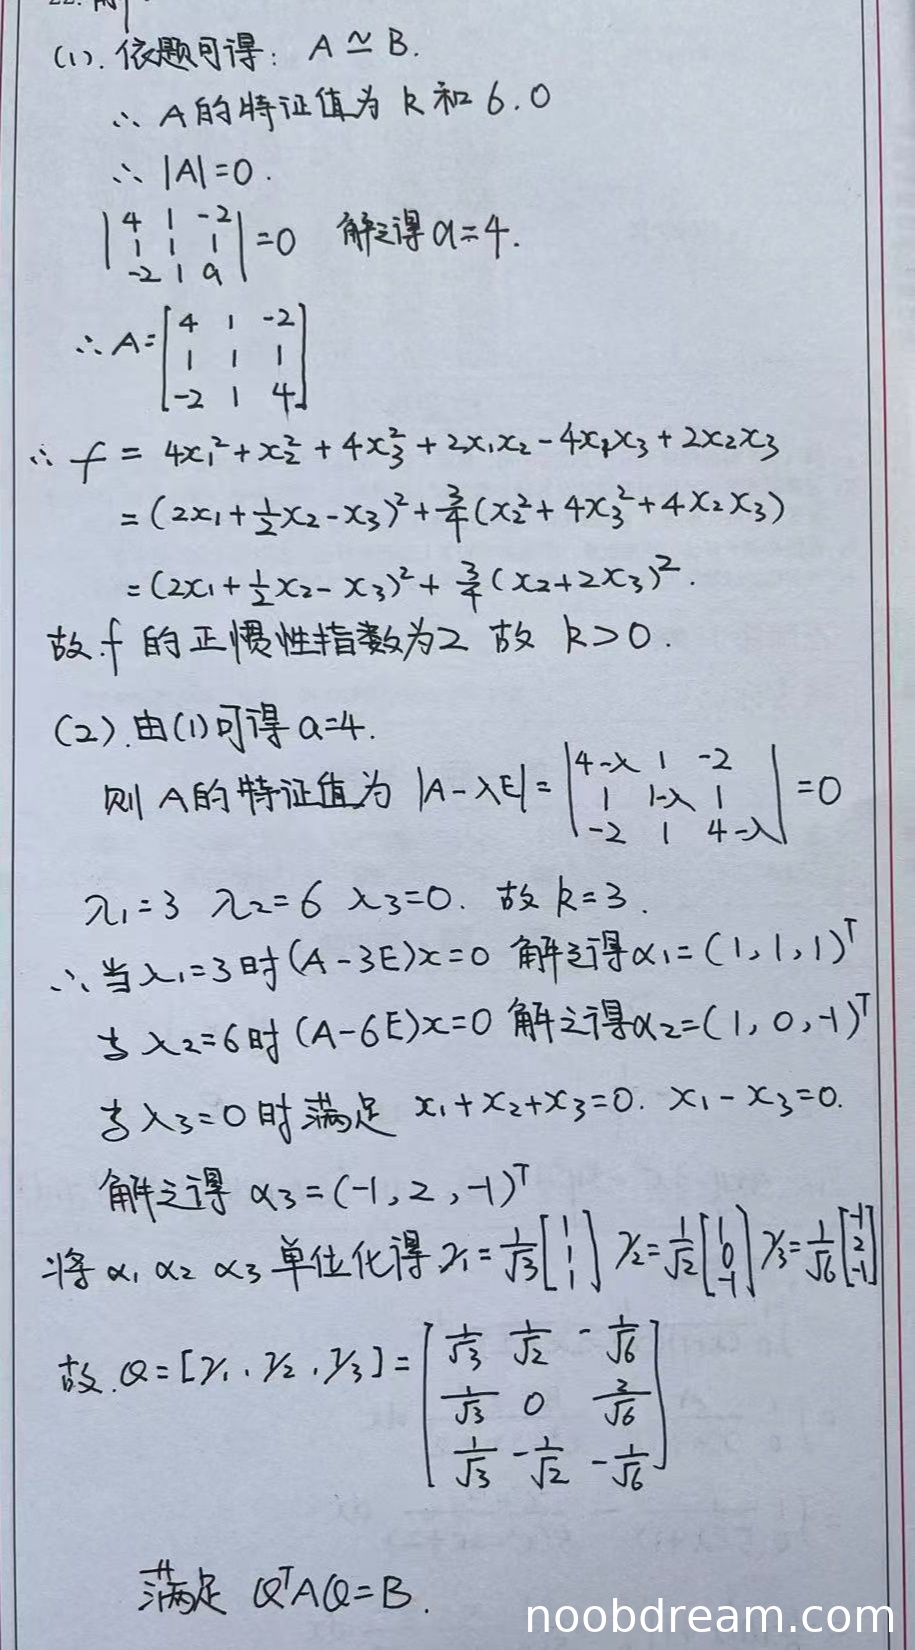 (1). 依题可得: A ≃ B.
∴ A的特征值为 k 和 6.0
∴ |A|=0.
| 4 1 -2 |
| 1 1 1 | =0 解之得 a=4.
| -2 1 a |
∴ A= [ 4 1 -2 ]
[ 1 1 1 ]
[ -2 1 4 ]
∴ f = 4x₁² + x₂² + 4x₃² + 2x₁x₂ - 4x₁x₃ + 2x₂x₃
= (2x₁ + 1/2 x₂ - x₃)² + 3/4 (x₂² + 4x₃² + 4x₂x₃)
= (2x₁ + 1/2 x₂ - x₃)² + 3/4 (x₂ + 2x₃)².
故.f 的正惯性指数为2 故 k>0.
(2).由(1)可得 a=4.
则 A的特征值为 |A-λE| = | 4-λ 1 -2 |
| 1 1-λ 1 | =0
| -2 1 4-λ |
λ₁=3 λ₂=6 λ₃=0. 故 k=3.
∴ 当 λ₁=3时 (A-3E)x=0 解之得 α₁=(1, 1, 1)ᵀ
当 λ₂=6时 (A-6E)x=0 解之得 α₂=(1, 0, -1)ᵀ
当 λ₃=0时 满足 x₁+x₂+x₃=0. x₁-x₃=0.
解之得 α₃=(-1, 2, -1)ᵀ
将 α₁ α₂ α₃ 单位化得 γ₁= 1/√3 [1 1 1] γ₂= 1/√2 [1 0 -1] γ₃= 1/√6 [-1 2 -1]
故.Q=[γ₁.γ₂.γ₃]= [ 1/√3 1/√2 -1/√6 ]
[ 1/√3 0 2/√6 ]
[ 1/√3 -1/√2 -1/√6 ]
满足 QᵀAQ=B.
noobdream.com